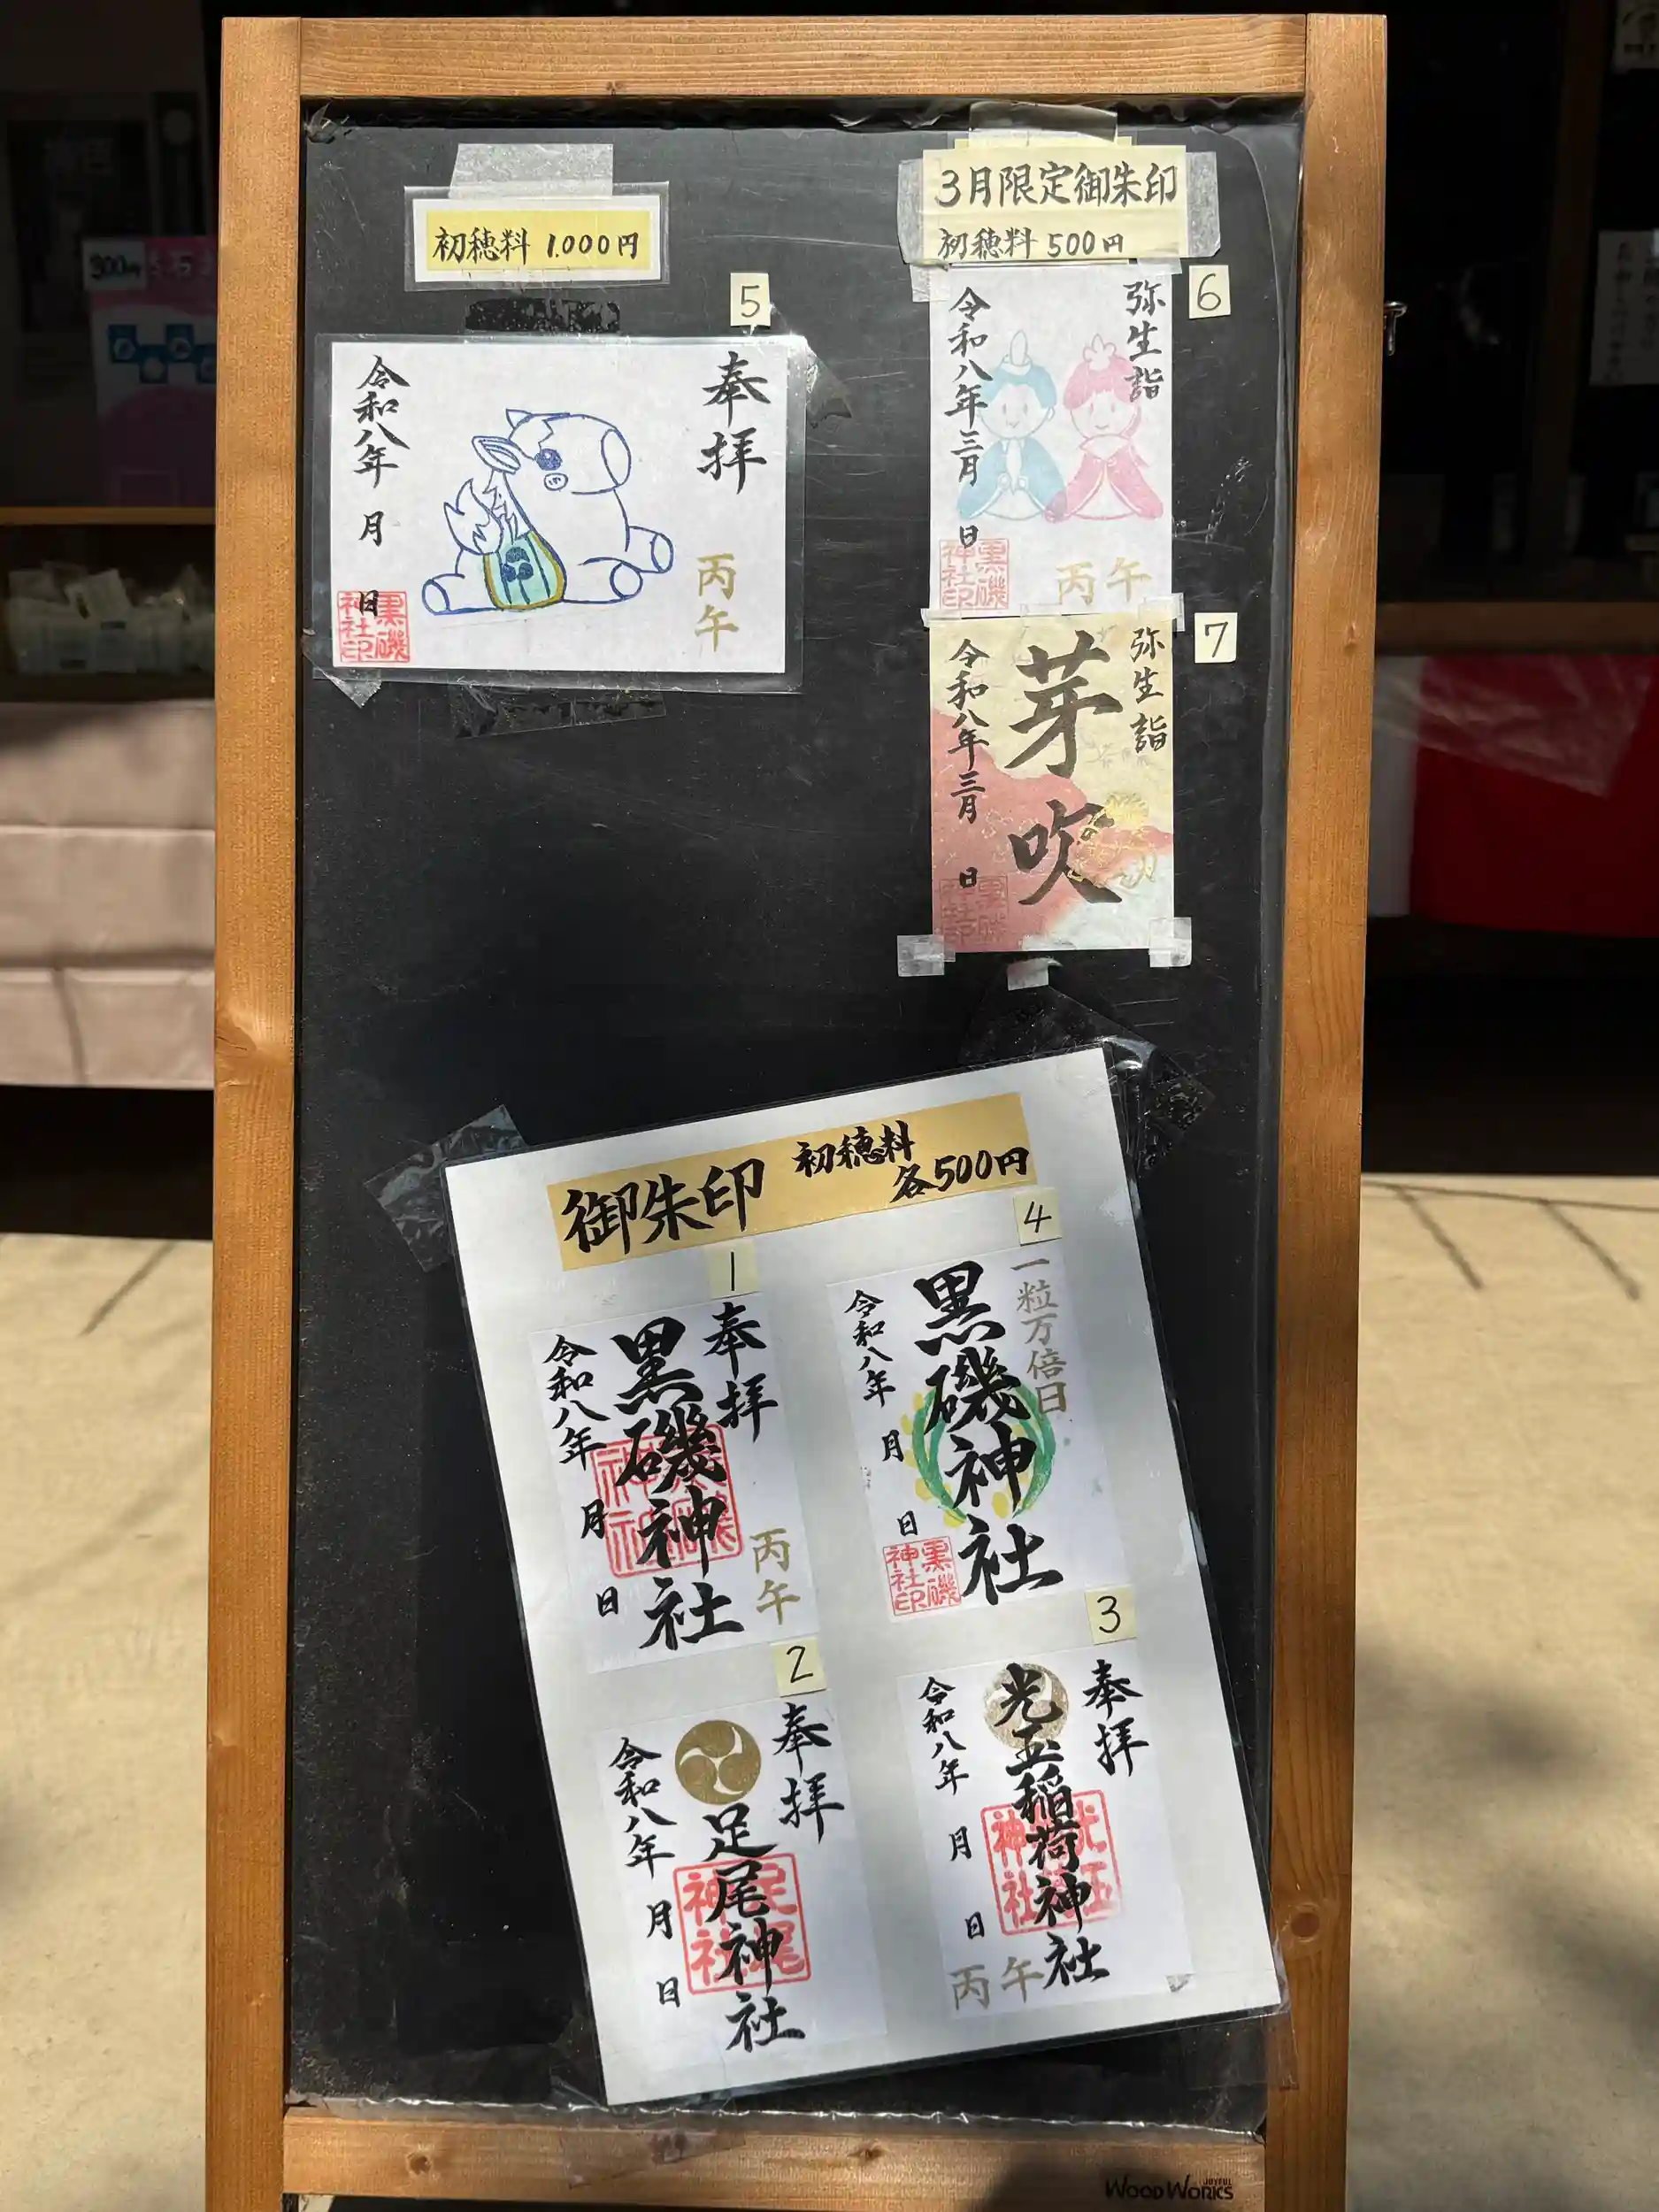 初穂料 1.000円
5
奉拝
丙午
令和八年 月 日
黒磯
神社印
3月限定御朱印
初穂料 500円
6
弥生詣
令和八年三月 日
丙午
黒磯
神社印
7
弥生詣
芽吹
令和八年三月 日
黒磯
神社印
御朱印 初穂料
各500円
1
奉拝
黒磯神社
丙午
令和八年 月 日
4
一粒万倍日
黒磯神社
令和八年 月 日
黒磯
神社印
2
奉拝
足尾神社
令和八年 月 日
足尾
神社
3
奉拝
光玉稲荷神社
令和八年 月 日
丙午
JOYFUL
WOODWORKS
300円